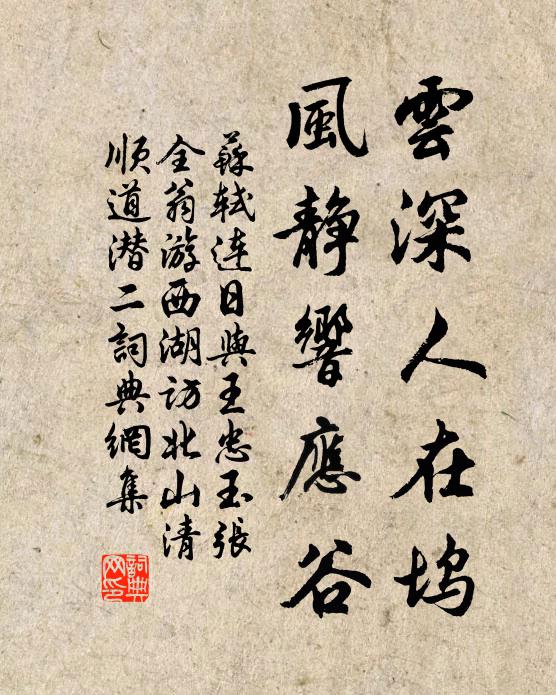 雲深人在塢
風静響應谷
蘇軾连日與王忠玉張
全翁游西湖訪北山清
順道潜二詞典網集
詞典网印